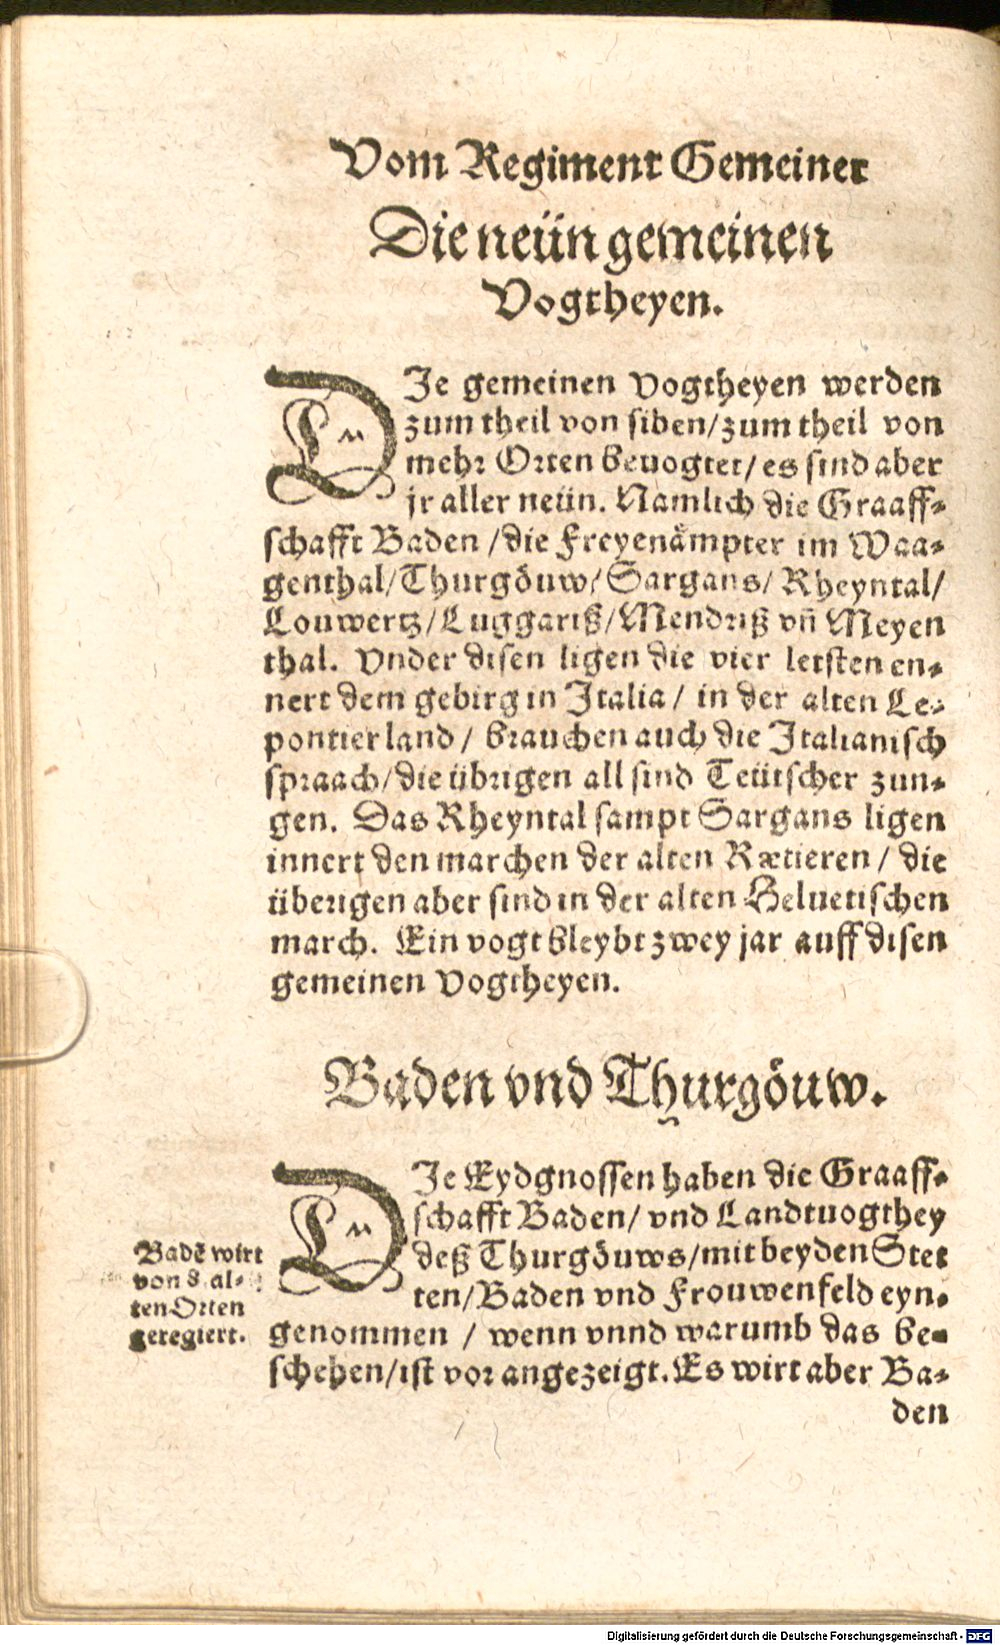 Vom Regiment Gemeiner
Die neün gemeinen
Vogtheyen.
DJe gemeinen Vogtheyen werden
zum theil von siben/zum theil von
mehr Orten beuogtet/es sind aber
jr aller neün. Namlich die Graaff-
schafft Baden /die Freyenämpter im Waa-
genthal/Thurgöuw/Sargans/Rheyntal/
Louwertz/Luggariß/Mendriß vñ Meyen
thal. Vnder disen ligen die vier letsten en-
nert dem gebirg in Jtalia / in der alten Le-
pontier land / brauchen auch die Jtalianisch
spraach/die übrigen all sind Teütscher zun-
gen. Das Rheyntal sampt Sargans ligen
innert den marchen der alten Rætieren / die
überigen aber sind in der alten Heluetischen
march. Ein vogt bleybt zwey jar auff disen
gemeinen Vogtheyen.
Baden vnd Thurgöuw.
DJe Eydgnossen haben die Graaff-
schafft Baden/ vnd Landtuogthey
deß Thurgöuws/mit beyden Stet
ten/Baden vnd Frouwenfeld eyn-
genommen / wenn vnnd warumb das be-
schehen/ist vor angezeigt. Es wirt aber Ba-
den
Badē wirt
von 8 al-
ten Orten
geregiert.
Digitalisierung gefördert durch die Deutsche Forschungsgemeinschaft - DFG